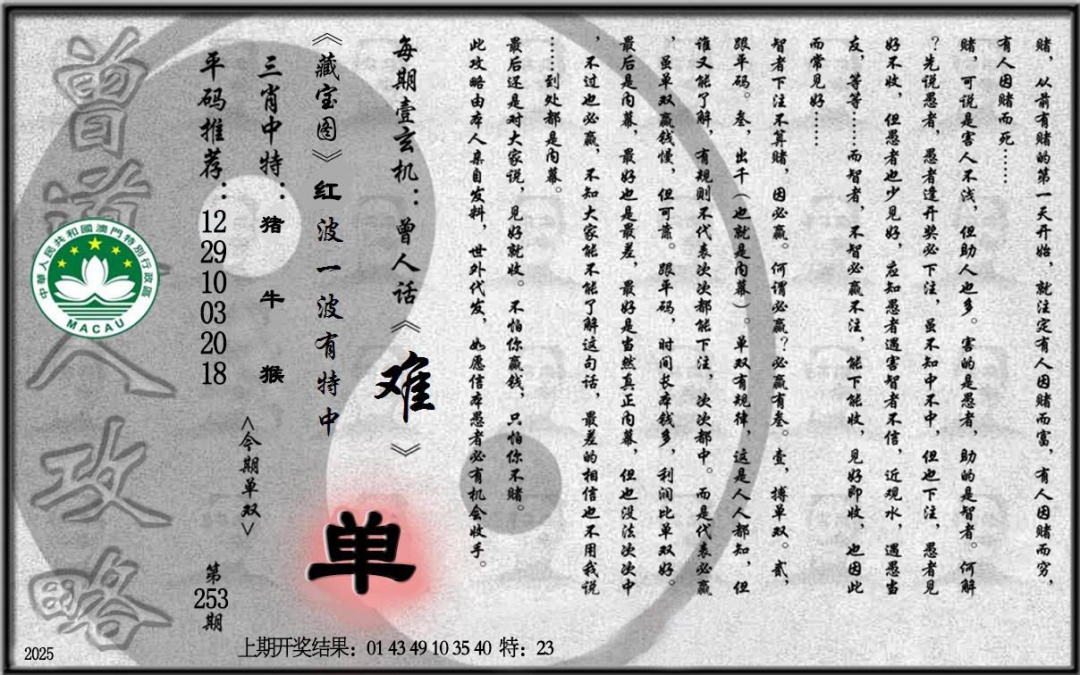 赌，从前有赌的第一天开始，就注定有人因赌而富，有人因赌而穷，
有人因赌而死……
赌，可说是害人不浅，但助人也多。害的是愚者，助的是智者。何解
？先说愚者，愚者逢开奖必下注，虽不知中不中，但也下注，愚者见
好不收，但愚者也少见好，应知愚者遇害智者不信，近观水，遇愚当
友，等等……而智者，不智必赢不注，能下能收，见好即收，也因此
而常见好……
智者下注不算赌，因必赢。何谓必赢？必赢有叁。壹，搏单双。贰，
跟单码。叁，出千（也就是内幕）。单双有规律，这是人人都知，但
谁又能了解，有规则不代表次次都能下注，次次都中。而是代表必赢
，虽单双赢钱慢，但可靠。跟单码，时间长本钱多，利润比单双好。
最后是内幕，最好也是最差，最好是当然真正内幕，但也没法次次中
，不过也必赢，不知大家能不能了解这句话，最差的相信也不用我说
……到处都是内幕。
最后还是对大家说，见好就收。不怕你赢钱，只怕你不赌。
此攻略由本人亲自发料，世外代发，如愿信本愚者必有机会收手。
每期壹玄机：曾人话《难》
《藏宝图》红波一波有特中
单
三肖中特：猪 牛 猴
<今期单双>
平码推荐：12 29 10 03 20 18
第253期
曾道人攻略
中華人民共和國澳門特別行政區
MACAU
2025
上期开奖结果：01 43 49 10 35 40 特：23